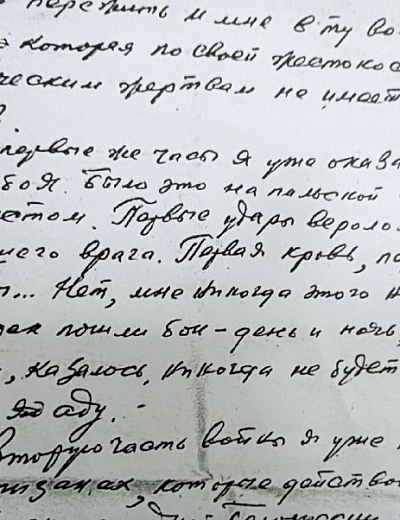 пережить и мне в ту во
которая по своей жестокос
ческим жертвам не имеет
первые же часы я уже оказа
боя. Было это на польской
Первые удары веролом
его врага. Первая кровь, по
... Нет, мне никогда этого н
пошли бои - день и ночь,
, казалось, никогда не будет
аду. -
Вторую часть войны я уже
тизанах, которые действов